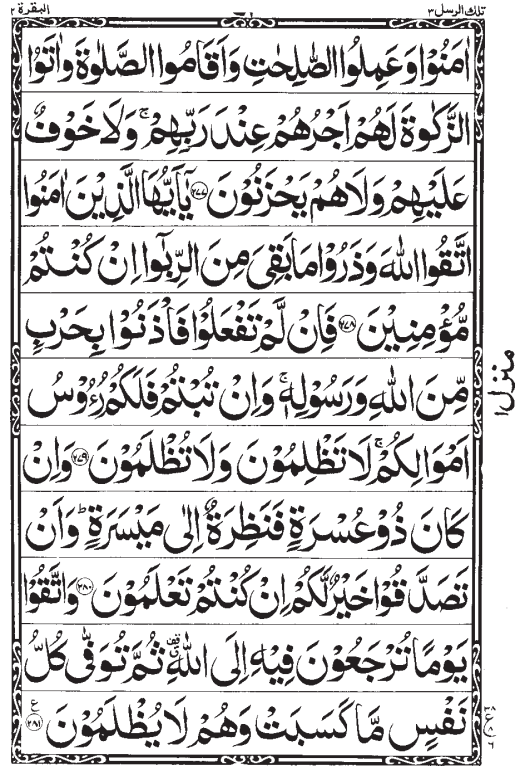 تلك الرسل ٣
البقرة ٢
اٰمَنُوْا وَعَمِلُوا الصّٰلِحٰتِ وَاَقَامُوا الصَّلٰوةَ وَاٰتَوُا
الزَّكٰوةَ لَهُمْ اَجْرُهُمْ عِنْدَ رَبِّهِمْ ۚ وَلَا خَوْفٌ
عَلَيْهِمْ وَلَا هُمْ يَحْزَنُوْنَ ﴿۲۷۷﴾ يٰۤاَيُّهَا الَّذِيْنَ اٰمَنُوا
اتَّقُوا اللّٰهَ وَذَرُوْا مَا بَقِىَ مِنَ الرِّبٰٓوا اِنْ كُنْتُمْ
مُّؤْمِنِيْنَ ﴿۲۷۸﴾ فَاِنْ لَّمْ تَفْعَلُوْا فَاْذَنُوْا بِحَرْبٍ
مِّنَ اللّٰهِ وَرَسُوْلِهٖ ۚ وَاِنْ تُبْتُمْ فَلَكُمْ رُءُوْسُ
اَمْوَالِكُمْ ۚ لَا تَظْلِمُوْنَ وَلَا تُظْلَمُوْنَ ﴿۲۷۹﴾ وَاِنْ
كَانَ ذُوْ عُسْرَةٍ فَنَظِرَةٌ اِلٰى مَيْسَرَةٍ ؕ وَاَنْ
تَصَدَّقُوْا خَيْرٌ لَّكُمْ اِنْ كُنْتُمْ تَعْلَمُوْنَ ﴿۲۸۰﴾ وَاتَّقُوْا
يَوْمًا تُرْجَعُوْنَ فِيْهِ اِلَى اللّٰهِ ۗ ثُمَّ تُوَفّٰى كُلُّ
نَفْسٍ مَّا كَسَبَتْ وَهُمْ لَا يُظْلَمُوْنَ ﴿۲۸۱﴾ ع
منزل ۱